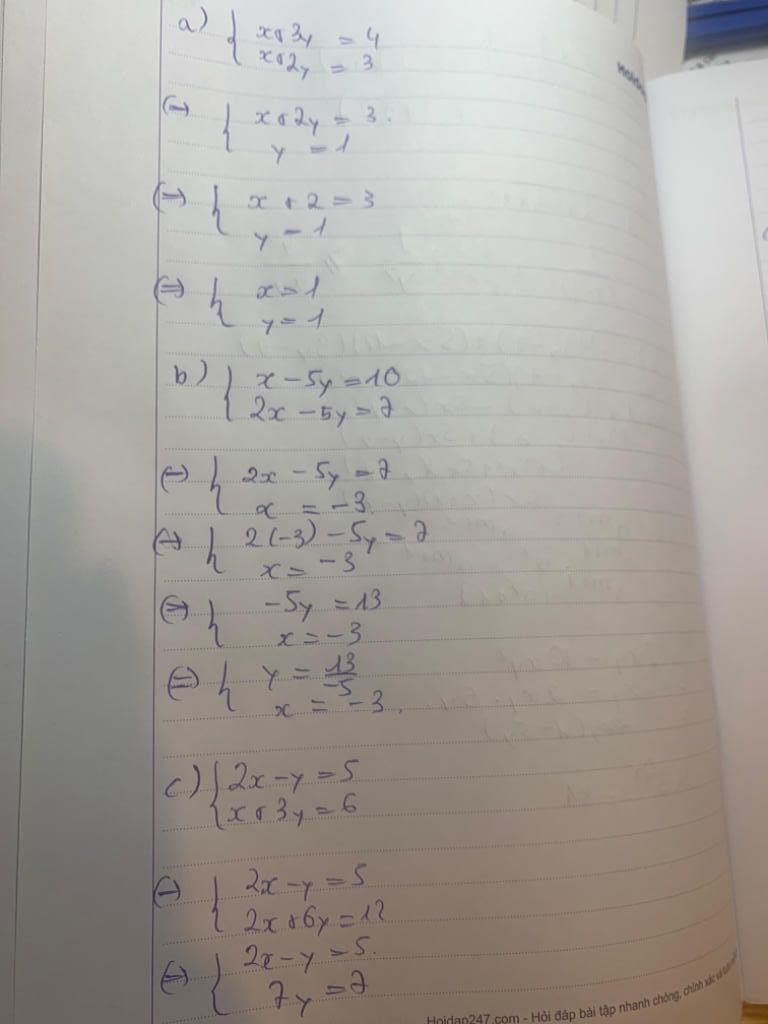 a) { x+3y = 4
x+2y = 3
(=) { x+2y = 3.
y = 1
(=) { x + 2 = 3
y = 1
(=) { x = 1
y = 1
b) { x - 5y = 10
2x - 5y = 7
(=) { 2x - 5y = 7
x = -3
(=) { 2(-3) - 5y = 7
x = -3
(=) { -5y = 13
x = -3
(=) { y = 13/-5
x = -3.
c) { 2x - y = 5
x + 3y = 6
(=) { 2x - y = 5
2x + 6y = 12
(=) { 2x - y = 5.
7y = 7
Hoidap247.com - Hỏi đáp bài tập nhanh chóng, chính xác